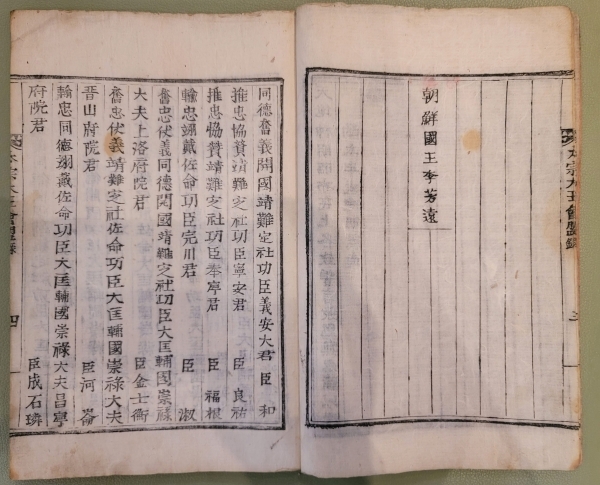 太宗大王會盟錄
三
朝鮮國王李芳遠
同德奮義開國靖難定社功臣義安大君 臣 和
推忠協贊靖難定社功臣寧安君 臣 良祐
推忠協贊靖難定社功臣奉寧君 臣 福根
輸忠翊戴佐命功臣完川君 臣 淑
奮忠伏義同德開國靖難定社功臣大匡輔國崇祿
大夫上洛府院君 臣 金士衡
奮忠伏義靖難定社佐命功臣大匡輔國崇祿大夫
晋山府院君 臣 河崙
輸忠同德翊戴佐命功臣大匡輔國崇祿大夫昌寧
府院君 臣 成石璘
太宗大王會盟錄
四